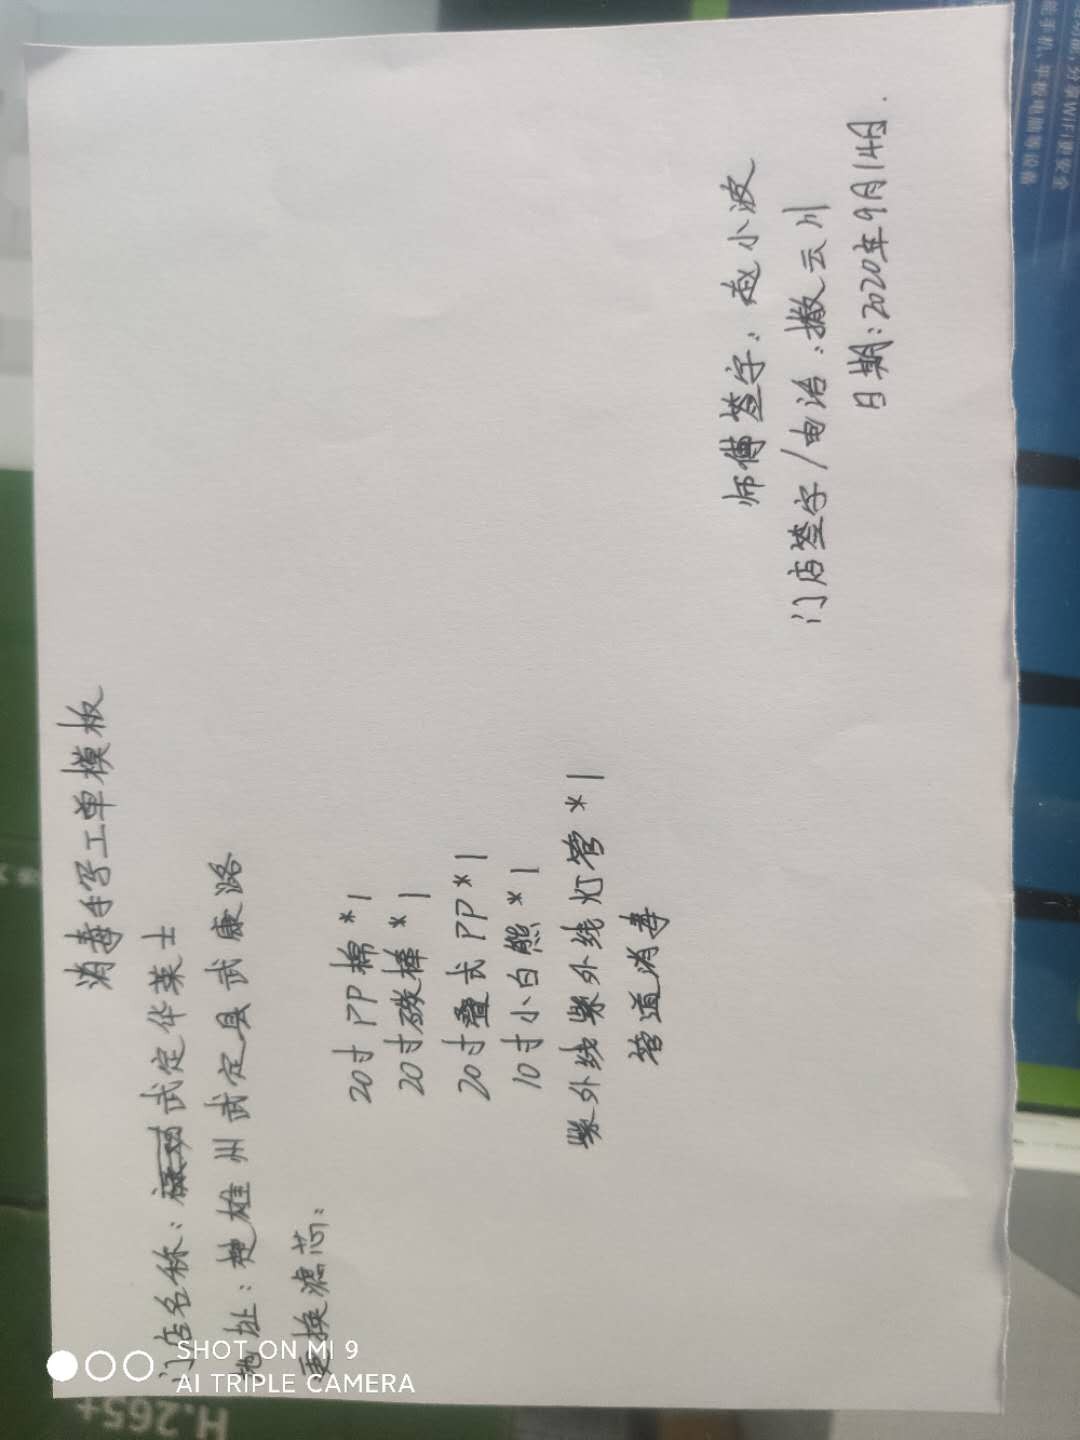 消毒手写工单模板
门店名称：武定华莱士
地址：楚雄州武定县武康路
更换滤芯：
20寸PP棉*1
20寸碳棒*1
20寸叠式PP*1
10寸小白熊*1
紫外线紫外线灯管*1
管道消毒
师傅签字：赵小波
门店签字/电话：撒云川
日期：2020年9月14日.
SHOT ON MI 9
AI TRIPLE CAMERA
H.265+
能手机、平板电脑等设备
分享WiFi更安全